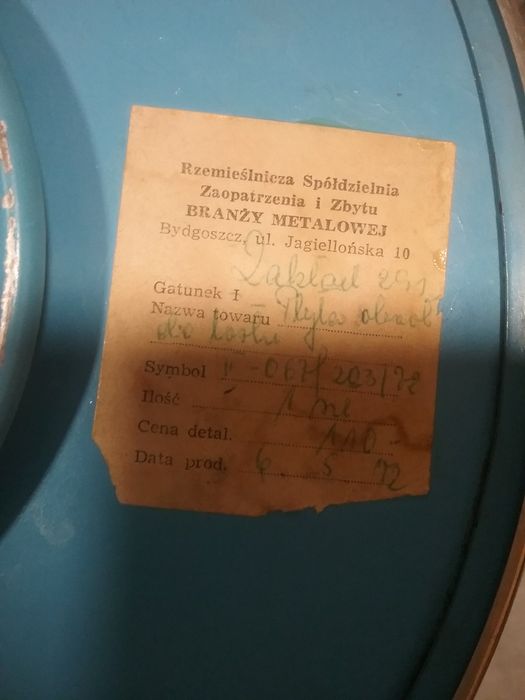 Rzemieślnicza Spółdzielnia
Zaopatrzenia i Zbytu
BRANŻY METALOWEJ
Bydgoszcz, ul. Jagiellońska 10
Zakład
Gatunek I
Nazwa towaru Płyta obrot
do tortu
Symbol
Ilość 1
Cena detal. 110-
Data prod. 6 5 72